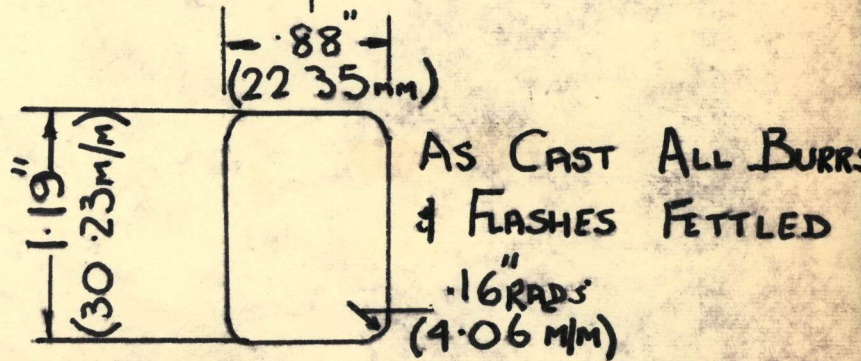 .88"
(22 35mm)
1.19"
(30.23m/m)
AS CAST ALL BURRS
& FLASHES FETTLED
.16" RADS
(4.06 M/M)